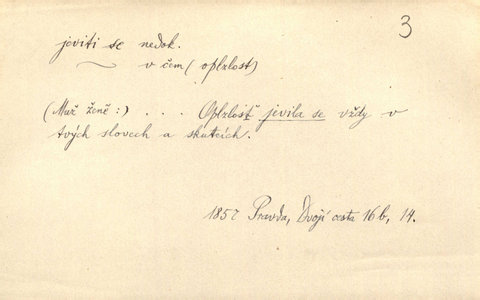 3
jeviti se nedok.
v čem (oplzlost)
(Muž ženě:) . . . Oplzlosť jevila se vždy v
tvých slovech a skutcích.
1857 Pravda, Dvojí cesta 16b, 14.